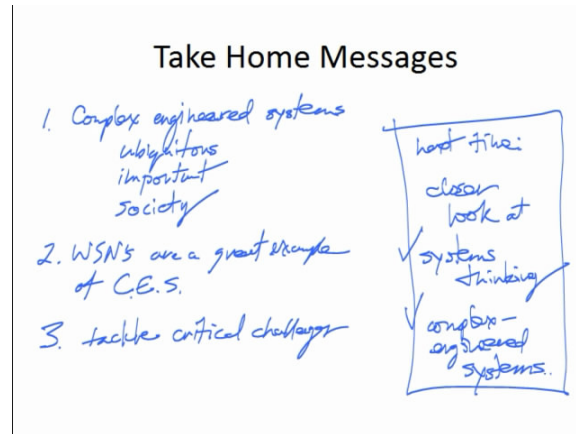 Take Home Messages
1. Complex engineered systems
ubiquitous
important
society
2. WSN's are a great example
of C.E.S.
3. tackle critical challenges
next time:
closer
look at
✓ systems
thinking
✓ complex-
engineered
systems..